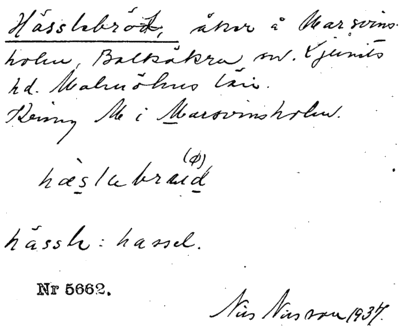 Hässlebröd, åker å Marsvins-
holm, Balkåkra sn. Ljunits
hd. Malmöhus län.
M i Marsvinsholm.
(ø)
hæslebraid
hässle: hassel.
Nr 5662.
Nils Nilsson 1937.